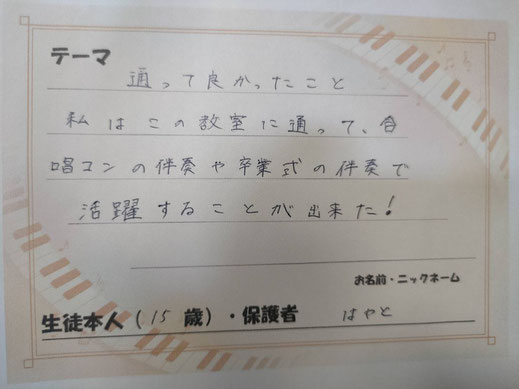 テーマ
通って良かったこと
私はこの教室に通って、合
唱コンの伴奏や卒業式の伴奏で
活躍することが出来た!
お名前・ニックネーム
生徒本人(15歳)・保護者 はやと